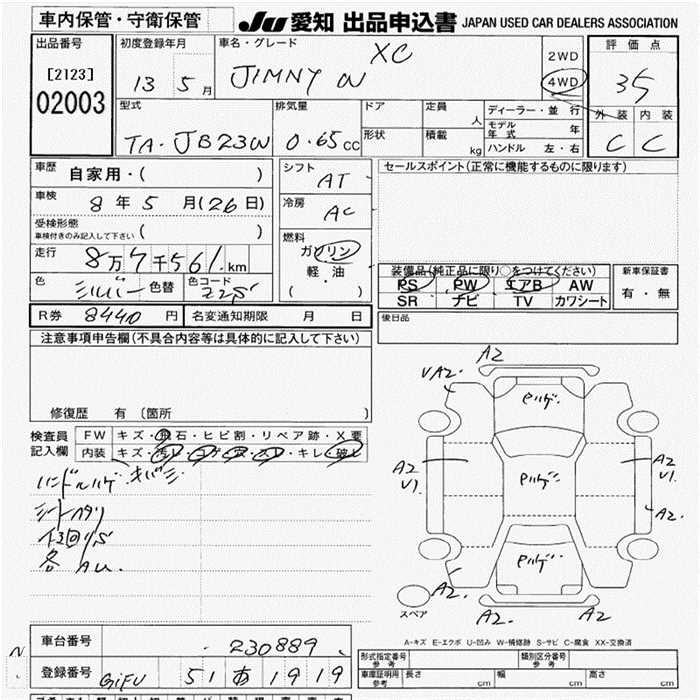 車内保管・守衛保管
JU 愛知 出品申込書 JAPAN USED CAR DEALERS ASSOCIATION
出品番号 初度登録年月 車名・グレード 評価点
[2123] 13 5 月 JIMNY XC 2WD 35
02003 4WD
型式 排気量 ドア 定員 人 ディーラー・並行 外装 内装
TA-JB23W 0.65 CC 形状 積載 kg モデル年式 年 C C
ハンドル 左・右
車歴 自家用・( ) シフト AT セールスポイント(正常に機能するものに限ります)
車検 8 年 5 月(26 日) 冷房 AC
受検形態
車検付きのみ記入して下さい ( ) 燃料
走行 8万7千561. km ガソリン
軽・油
( ・ )
装備品(純正品に限り○をつけてください) 新車保証書
色 シルバー 色替 色コード Z2S PS PW エアB AW 有・無
SR ナビ TV カワシート
R券 8440 円 名変通知期限 月 日 後日品
注意事項申告欄(不具合内容等は具体的に記入して下さい)
修復歴 有 (箇所 )
検査員 FW キズ・飛石・ヒビ割・リペア跡・X要
記入欄 内装 キズ・汚レ・コゲ・穴・スレ・キレ・破レ
ハンドルハゲ キバミ
A2
VA2.
A2
V1.
A2
V1.
A2.
A2.
A2.
A2.
スペア
A-キズ E-エクボ U-凹み W-補修跡 S-サビ C-腐食 XX-交換済
車台番号 230889
登録番号 GIFU 51 あ 1919
形式指定番号 参考 類別区分番号 参考
車庫証明用 参考 長さ cm 幅 cm 高さ cm